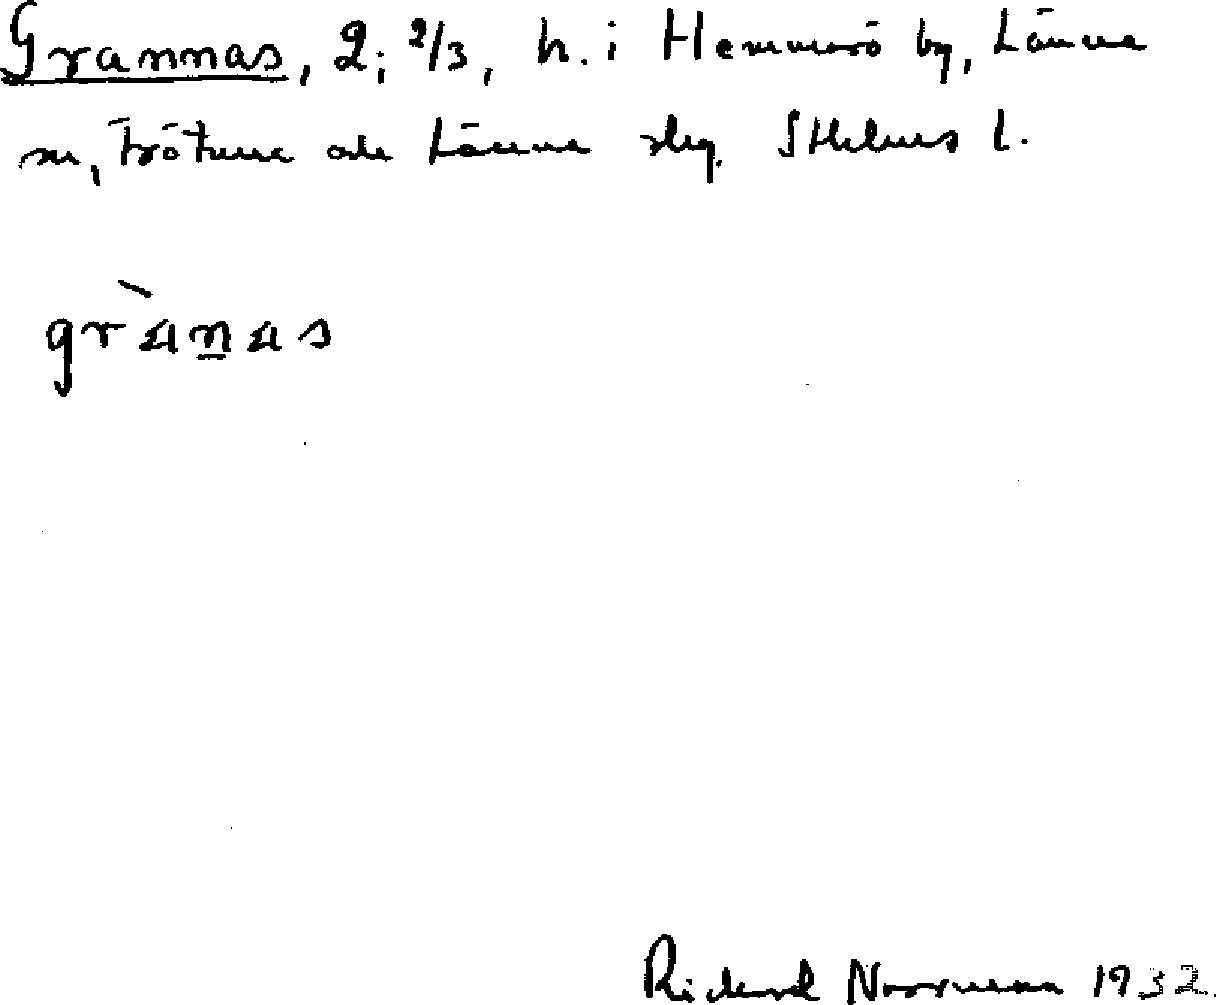 Grannas, 2; 2/3, h. i Hemmarö by, Länna
sn, Frötuna och Länna skg. Sthlms l.
grànas
Rickard Norrman 1932.